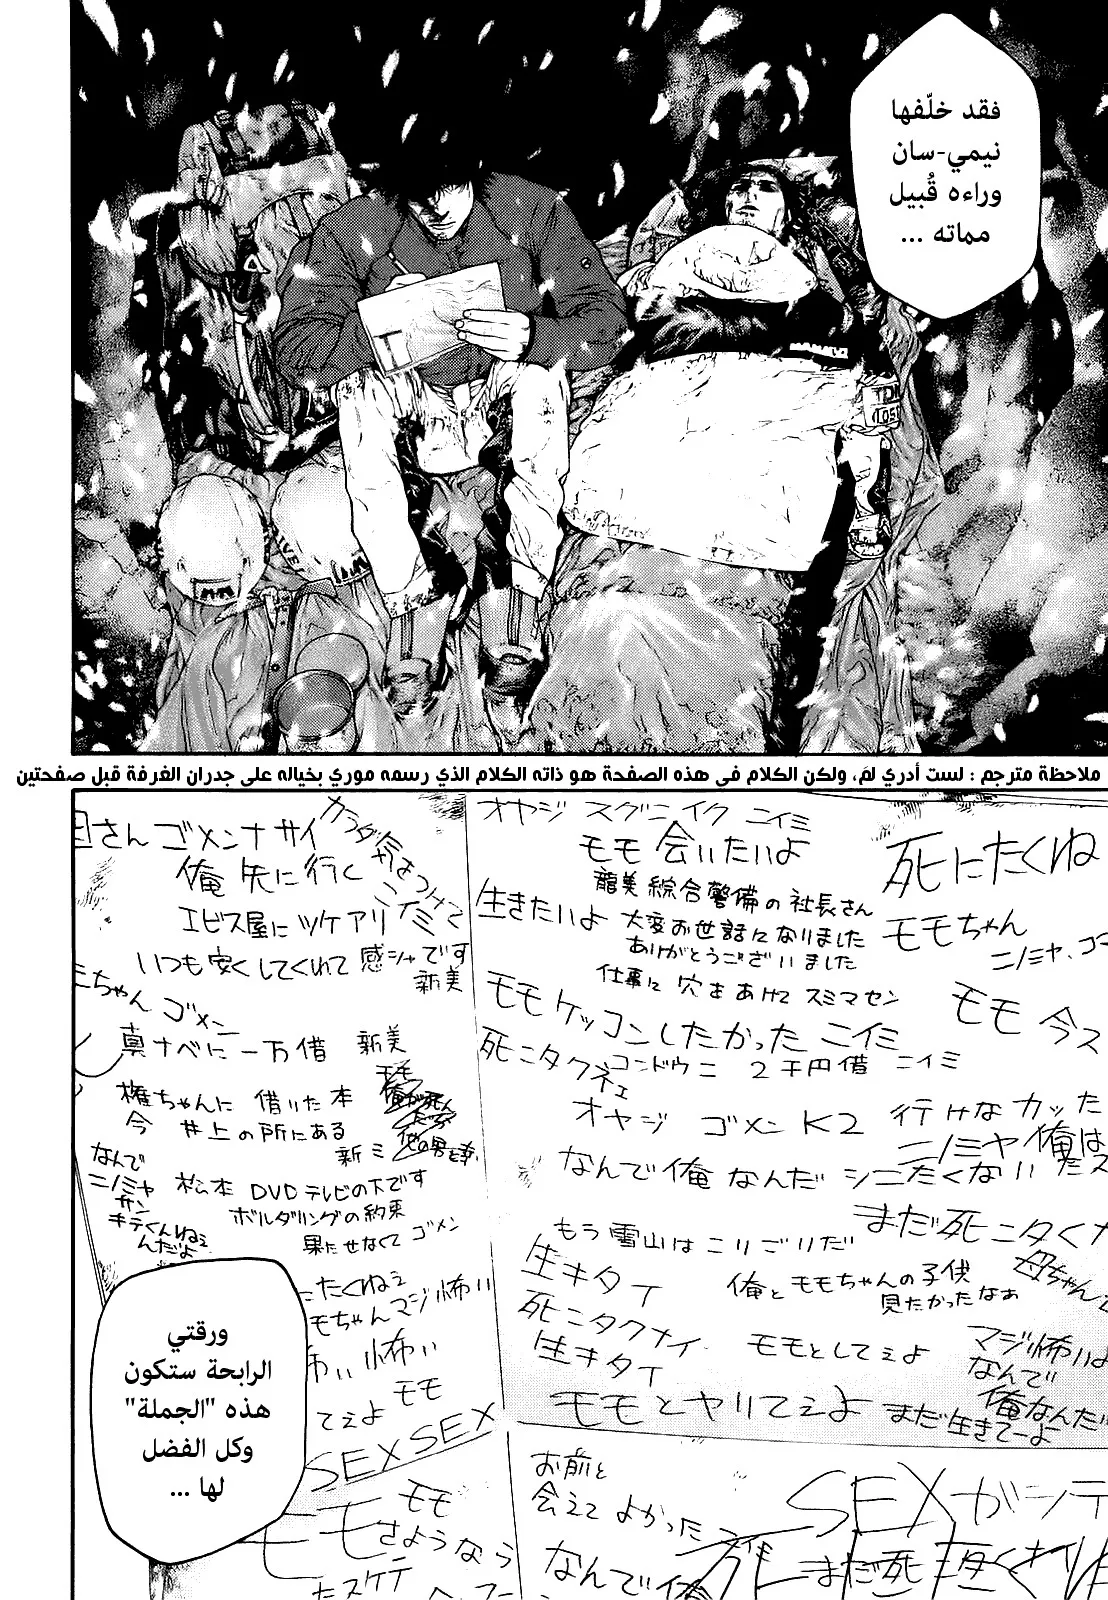 فقد خلّفها
نيمي-سان
وراءه قُبيل
مماته ...
TDK
1055
ملاحظة مترجم : لست أدري لمَ، ولكن الكلام في هذه الصفحة هو ذاته الكلام الذي رسمه موري بخياله على جدران الغرفة قبل صفحتين
オヤジ スグニイク ニイミ
モモ 会いたいよ
死にたくね
龍美綜合警備の社長さん
大変お世話になりました
ありがとうございました
仕事に穴をあけて スミマセン
生きたいよ
モモちゃん
ニノミヤ、ゴ
モモケッコンしたかった ニイミ
モモ 今ス
死ニタクネェ
コンドウニ 2千円借 ニイミ
オヤジ ゴメン K2 行けなカッた
ニノミヤ 俺は
なんで俺なんだ シニたくない
まだ死ニタくナ
もう雪山はこりごりだ
生キタイ
俺とモモちゃんの子供
見たかったなぁ
母ちゃん
死ニタクナイ
生キタイ
モモとしてぇよ
マジ怖いよ
なんで
俺なんだ
モモとヤりてぇよ
まだ生きてーよ
母さんゴメンナサイ
カラダ気をつけて
ニイミ
俺 先に行く
エビス屋にツケアリ
いつも安くしてくれて感シャです
新美
ミちゃん ゴメン
真ナベに一万借 新美
権ちゃんに 借りた本
今 井上の所にある
新ミ
モモ
俺が死んだら
他の男と幸
なんで
ニノミヤ
サン
キテくんねぇ
んだよ
松本 DVDテレビの下です
ボルダリングの約束
果たせなくて ゴメン
たくねぇ
モちゃんマジ怖い
怖い 怖い
モモ
てぇよ
SEX SEX
モモ
モモ
さようなら
たスケテ
お前と
会えて よかった
なんで俺
SEXがシテ
まだ死
ورقتي
الرابحة ستكون
هذه "الجملة"
وكل الفضل
لها ...